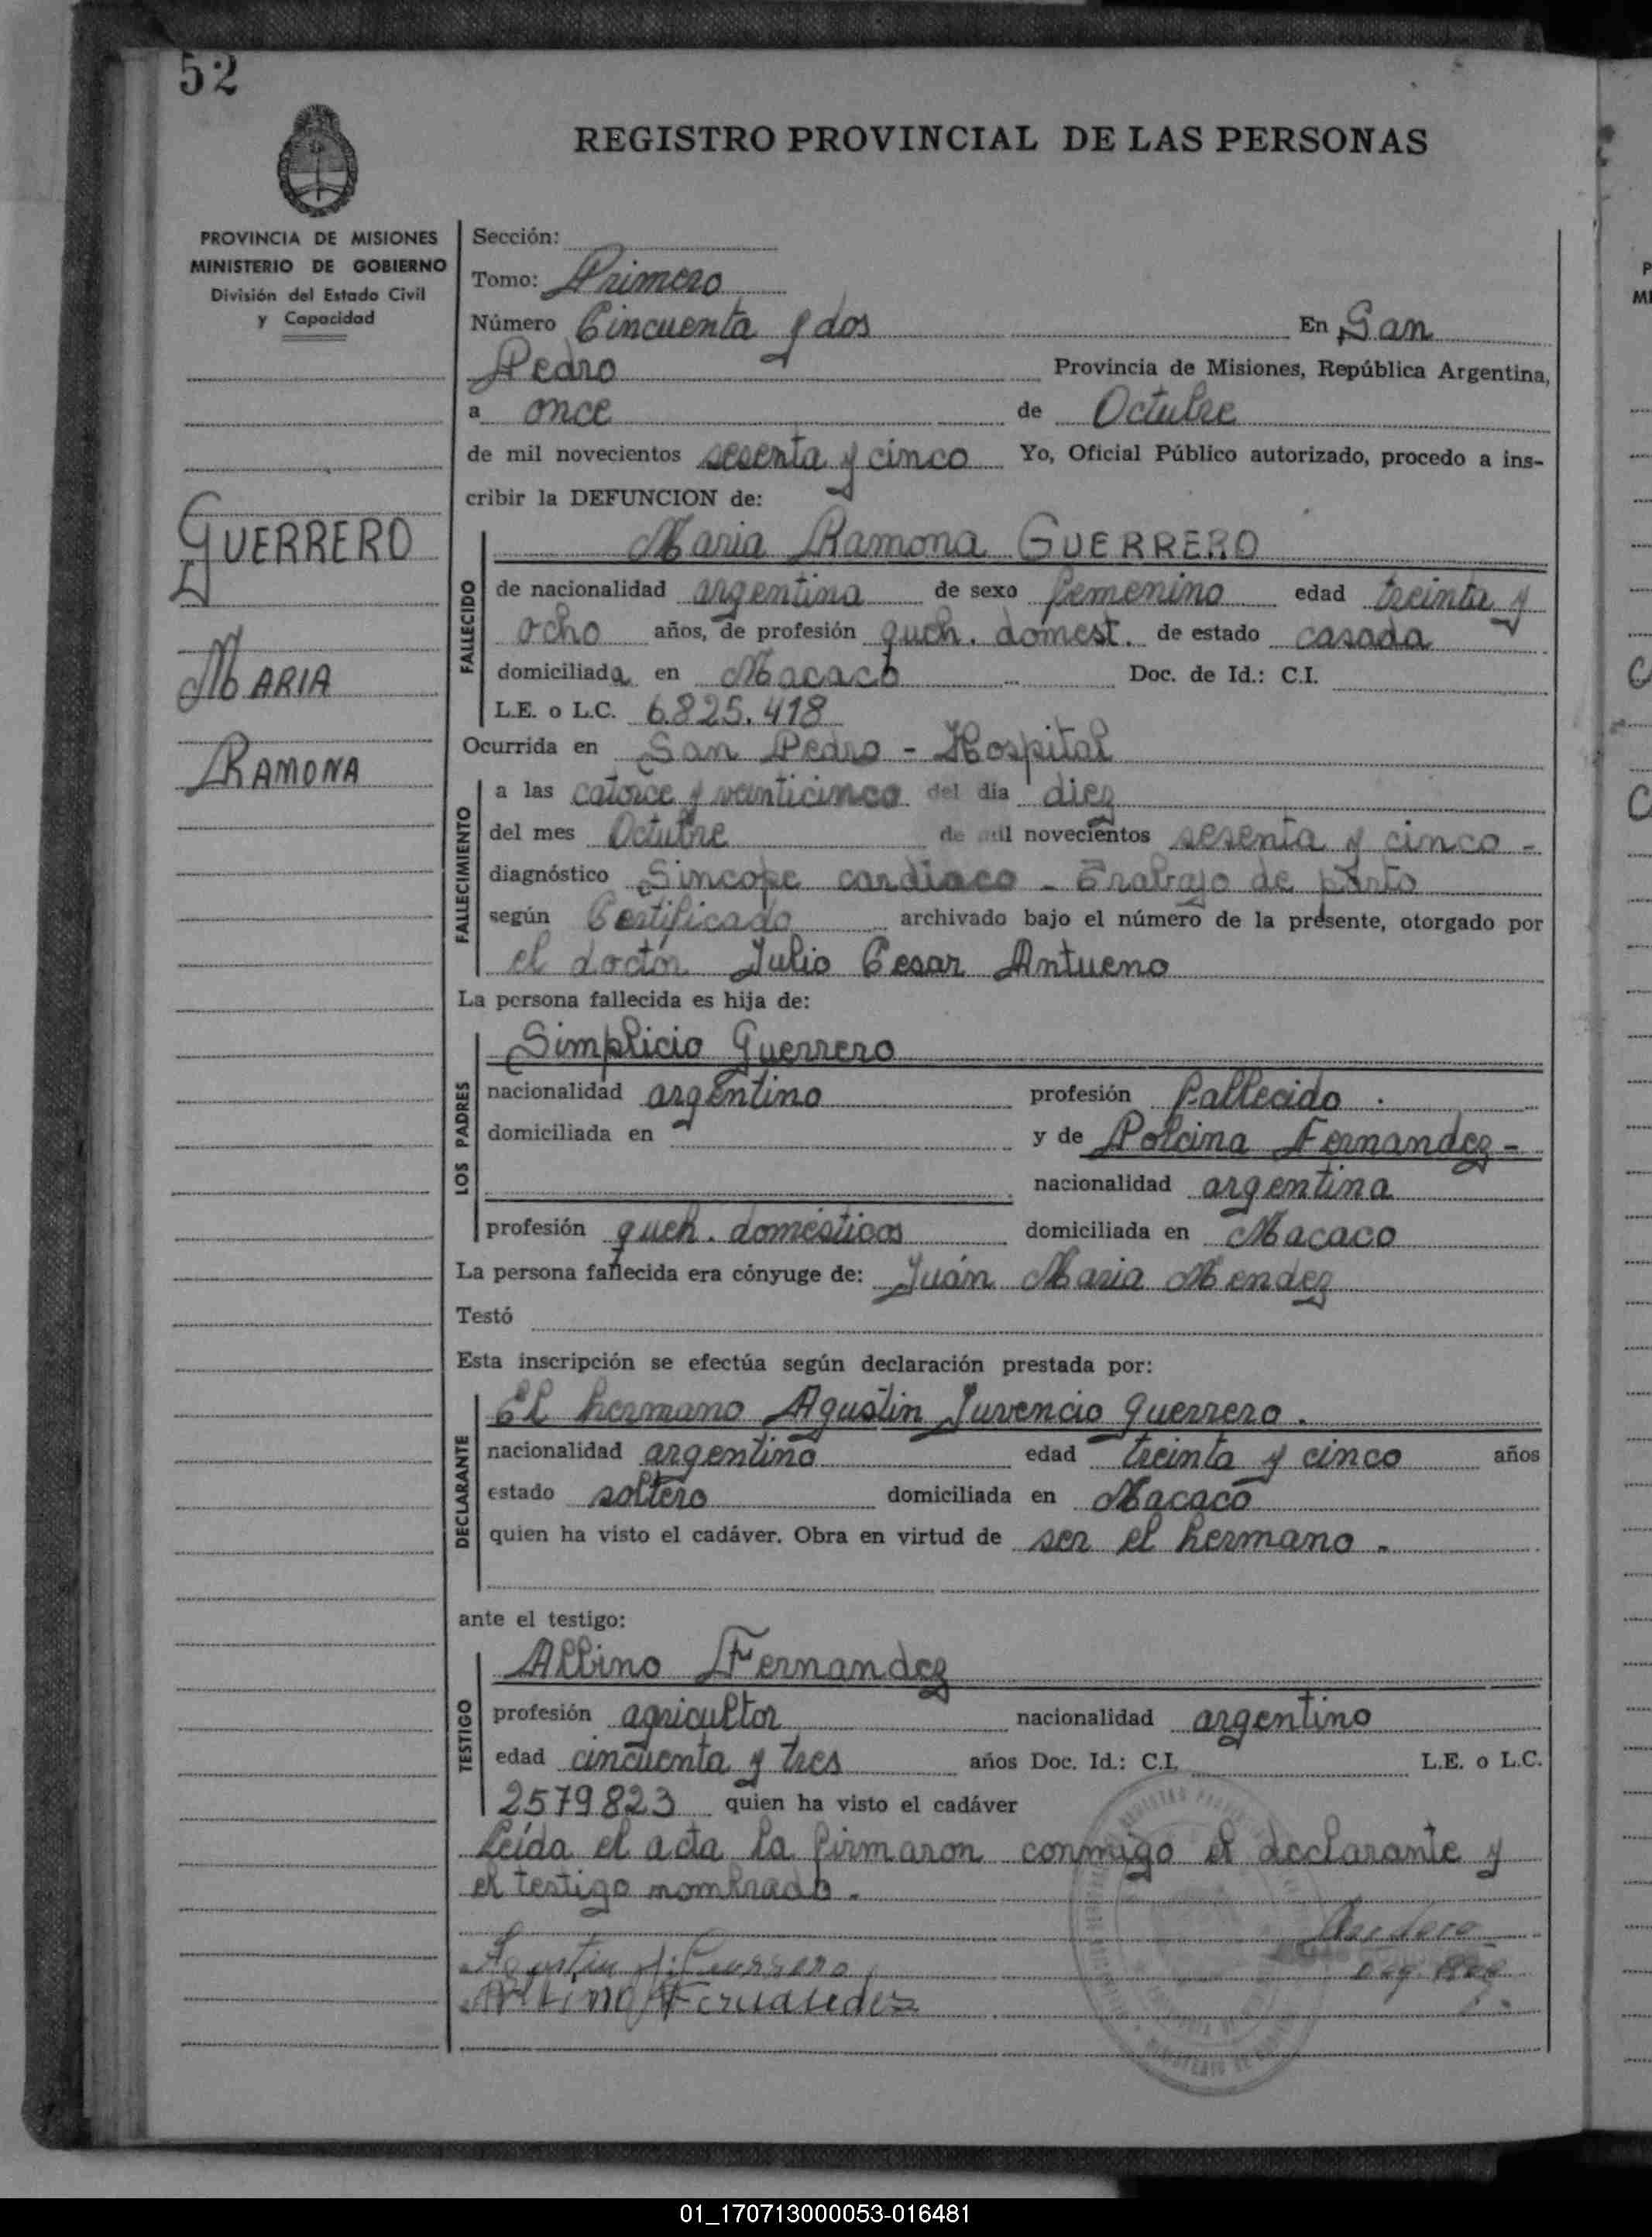 52
REGISTRO PROVINCIAL DE LAS PERSONAS
PROVINCIA DE MISIONES
MINISTERIO DE GOBIERNO
División del Estado Civil
y Capacidad
GUERRERO
MARIA
RAMONA
Sección:
Tomo: Primero
Número Cincuenta y dos En San
Pedro Provincia de Misiones, República Argentina,
a once de Octubre
de mil novecientos sesenta y cinco Yo, Oficial Público autorizado, procedo a ins-
cribir la DEFUNCION de:
FALLECIDO
Maria Ramona GUERRERO
de nacionalidad argentina de sexo femenino edad treinta y
ocho años, de profesión queh. domest. de estado casada
domiciliada en Macaco Doc. de Id.: C.I.
L.E. o L.C. 6.825.418
Ocurrida en San Pedro - Hospital
FALLECIMIENTO
a las catorce y veinticinco del día diez
del mes Octubre de mil novecientos sesenta y cinco -
diagnóstico Sincope cardiaco - Trabajo de parto
según Certificado archivado bajo el número de la présente, otorgado por
el doctor Julio Cesar Antueno
La persona fallecida es hija de:
LOS PADRES
Simplicio Guerrero
nacionalidad argentino profesión fallecido .
domiciliada en y de Polcina Fernandez -
nacionalidad argentina
profesión queh. domésticos domiciliada en Macaco
La persona fallecida era cónyuge de: Juán Maria Mendez
Testó
Esta inscripción se efectúa según declaración prestada por:
DECLARANTE
El hermano Agustin Juvencio Guerrero.
nacionalidad argentino edad treinta y cinco años
estado soltero domiciliada en Macaco
quien ha visto el cadáver. Obra en virtud de ser el hermano .
ante el testigo:
TESTIGO
Albino Fernandez
profesión agricultor nacionalidad argentino
edad cincuenta y tres años Doc. Id.: C.I. L.E. o L.C.
2579823 quien ha visto el cadáver
Leída el acta la firmaron conmigo el declarante y
el testigo nombrado.
Agustin J. Guerrero
Albino Fernandez
P
MI
C
C
01_170713000053-016481